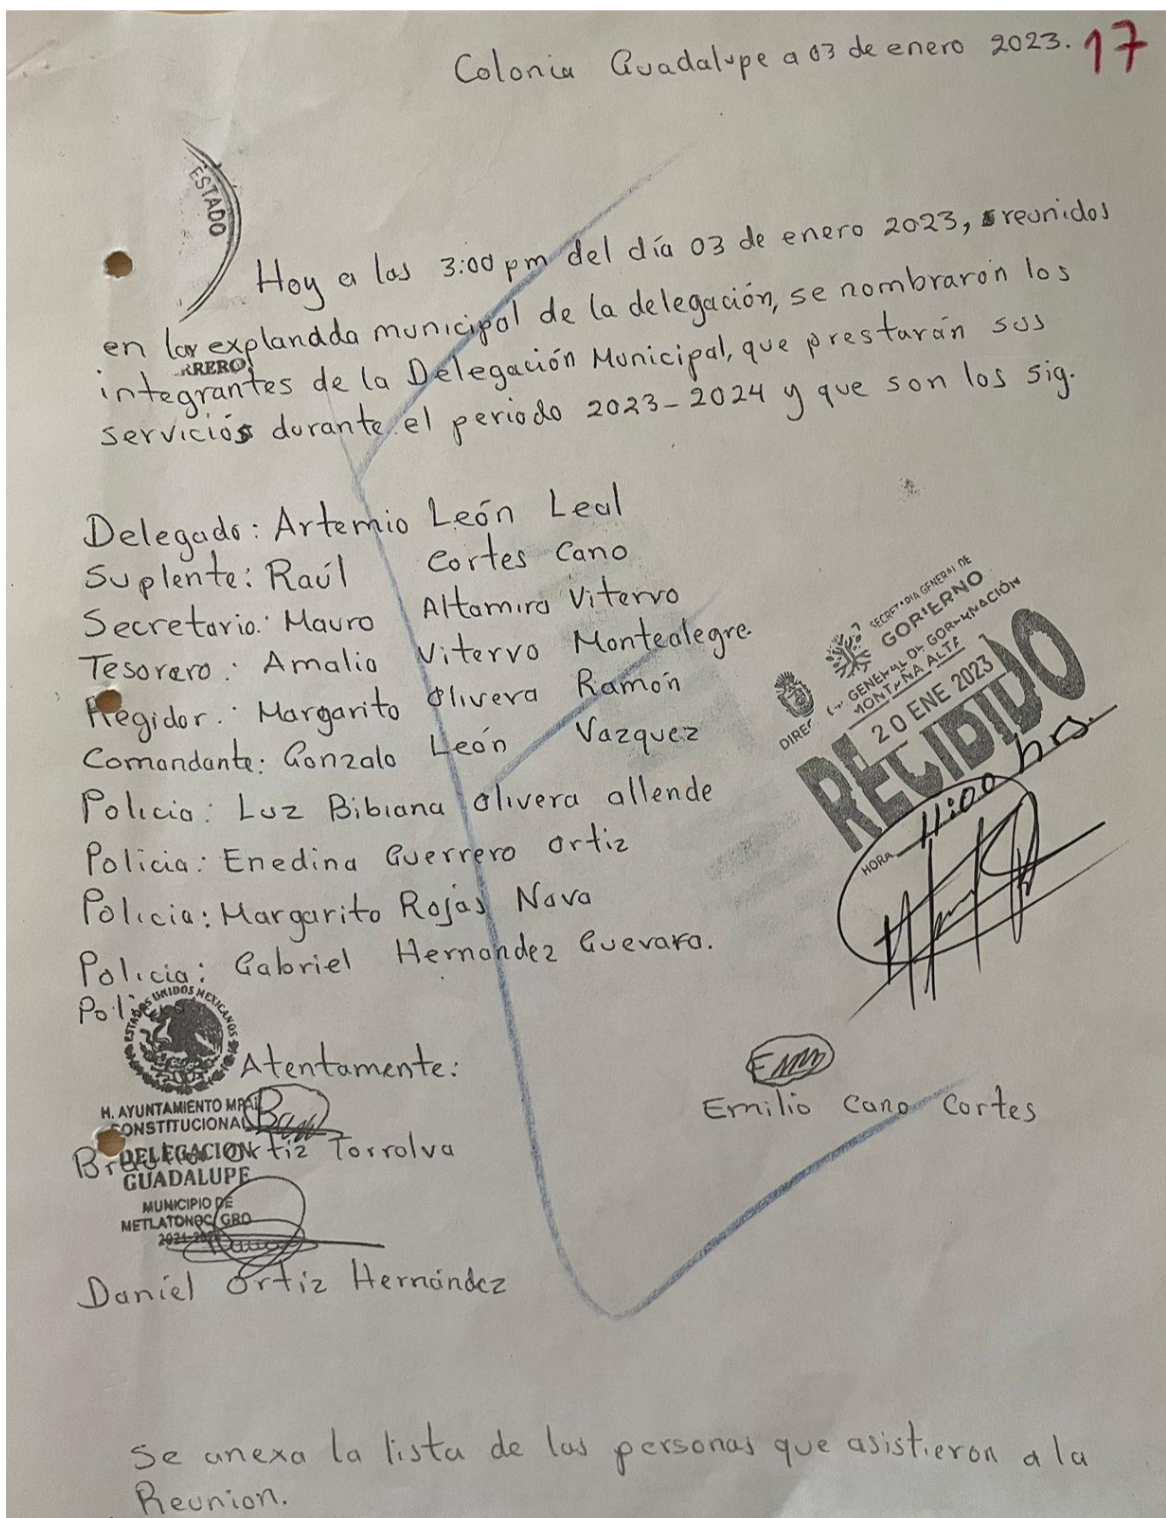 Colonia Guadalupe a 03 de enero 2023. 17
ESTADO
Hoy a las 3:00 pm del día 03 de enero 2023, reunidos
en la explandda municipal de la delegación, se nombrarón los
RRERO
integrantes de la Delegación Municipal, que prestarán sus
servicios durante el periodo 2023-2024 y que son los sig.
Delegado: Artemio León Leal
Suplente: Raúl Cortes Cano
Secretario: Mauro Altamira Vitervo
Tesorero: Amalia Vitervo Montealegre.
Regidor: Margarito Olivera Ramón
Comandante: Gonzalo León Vazquez
Policia: Luz Bibiana Olivera allende
Policia: Enedina Guerrero Ortiz
Policia: Margarito Rojas Nava
Policia: Gabriel Hernandez Guevara.
Poli
SECRETARIA GENERAL DE
GOBIERNO
GENERAL DE GOBERNACIÓN
MONTAÑA ALTA
DIREC
20 ENE 2023
RECIBIDO
HORA 11:00 hrs.
ESTADOS UNIDOS MEXICANOS
Atentamente:
H. AYUNTAMIENTO MPAL
CONSTITUCIONAL
DELEGACION
GUADALUPE
Ortiz Torrolva
MUNICIPIO DE
METLATONOC, GRO
Daniel Ortiz Hernández
Emilio Cano Cortes
Se anexa la lista de las personas que asistieron a la
Reunion.